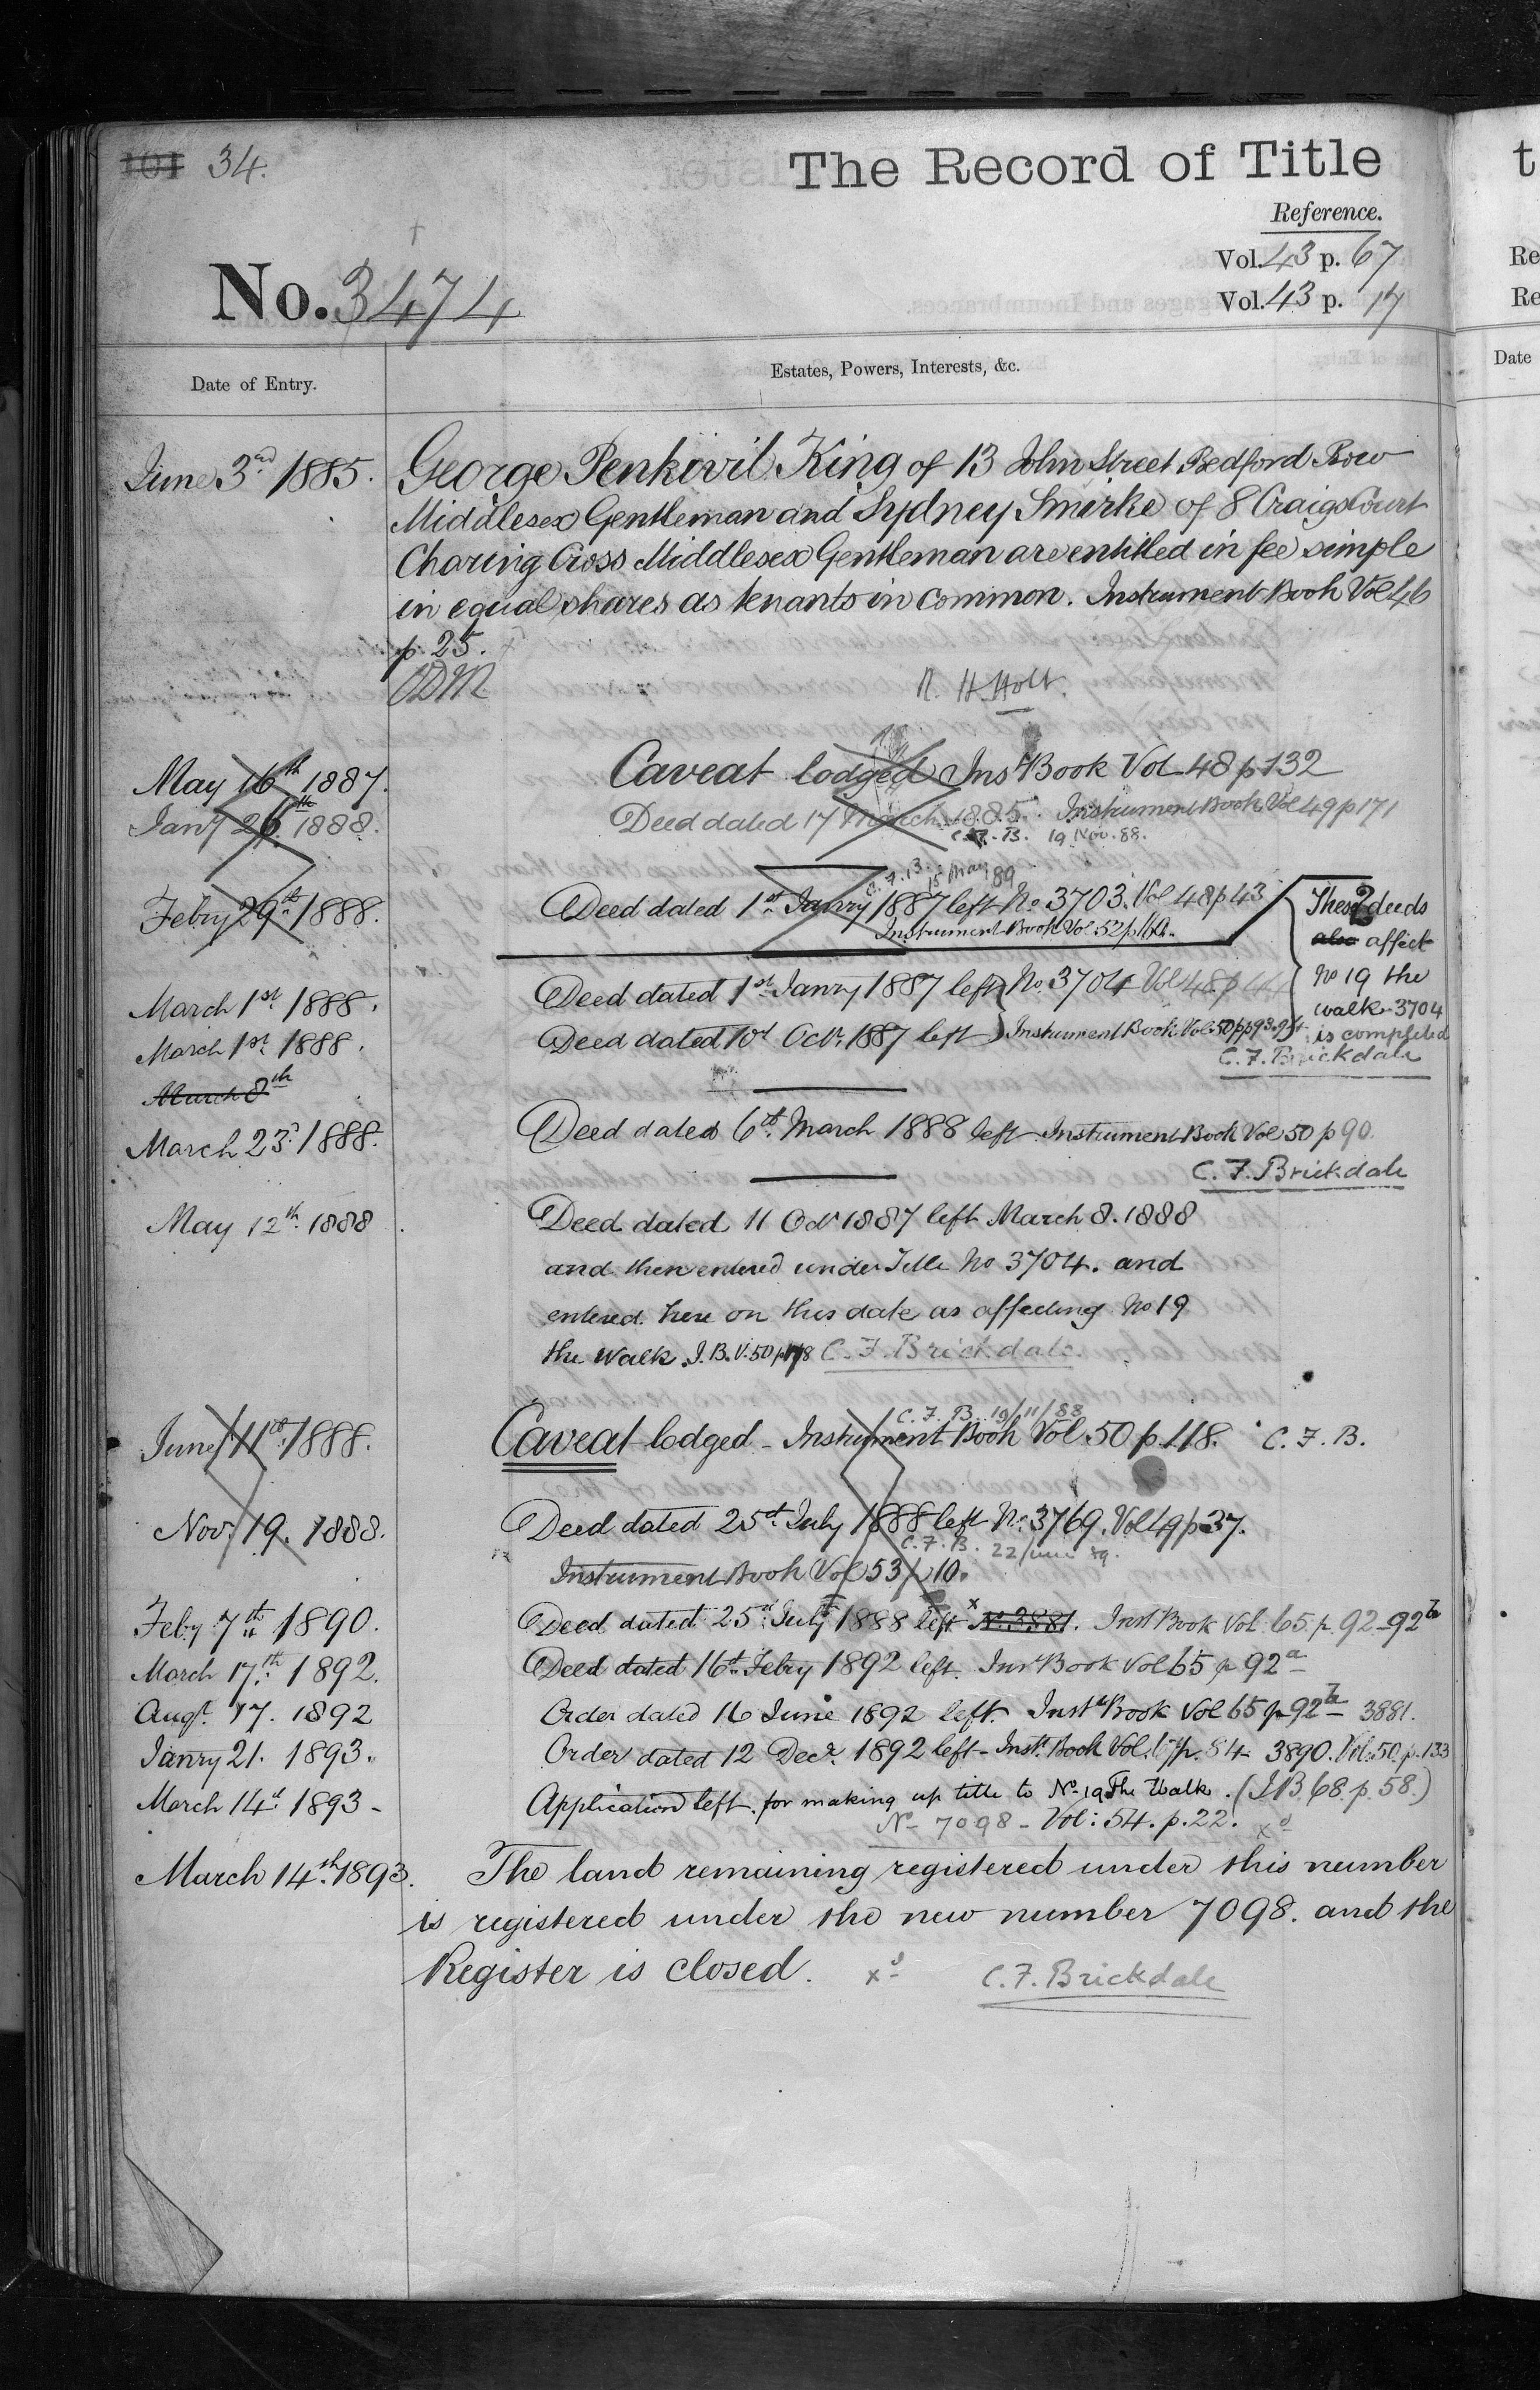 101 34.
The Record of Title
Reference.
Vol. 43 p. 67
No. 3474
Vol. 43 p. 17
Date of Entry.
Estates, Powers, Interests, &c.
June 3rd 1885.
George Penkivil King of 13 John Street Bedford Row
Middlesex Gentleman and Sydney Smirke of 8 Craigs Court
Charing Cross Middlesex Gentleman are entitled in fee simple
in equal shares as tenants in common. Instrument Book Vol 46
p. 25.
R. H. Holt.
May 16th 1887. Caveat lodged Inst Book Vol 48 p 132
Jany 26th 1888. Deed dated 17 March 1885. Instrument Book Vol 49 p 171
C.F.B. 19 Nov. 88.
C.F.B. 15 May 89
Febry 29th 1888. Deed dated 1st Janry 1887 left No. 3703. Vol 48 p 43
Instrument Book Vol 52 p
These 2 deeds
also affect
No 19 the
walk 3704
is completed
C. F. Brickdale
March 1st 1888. Deed dated 1st Janry 1887 left No. 3704 Vol 48 p 44
March 1st 1888. Deed dated 10th Octr. 1887 left Instrument Book Vol 50 pp 93
March 8th
March 23d. 1888. Deed dated 6th March 1888 left Instrument Book Vol 50 p 90.
C. F. Brickdale
May 12th 1888 Deed dated 11 Oct 1887 left March 8. 1888
and then entered under Title No 3704. and
entered here on this date as affecting No 19
the Walk. I. B. V. 50 p C. F. Brickdale
C. F. B. 19/11/88
June 11th 1888. Caveat lodged - Instrument Book Vol. 50 p. 118. C. F. B.
Nov. 19. 1888. Deed dated 25th July 1888 left No. 3769. Vol 49 p 37.
C. F. B. 22/June 89.
Instrument Book Vol 53 p 10.
Feby 7th 1890. Deed dated 25th July 1888 left x No. 3881. Inst Book Vol. 65. p. 92-92b
March 17th 1892. Deed dated 16th Febry 1892 left. Inst Book Vol 65 p 92a
Augt. 17. 1892 Order dated 16 June 1892 left. Inst Book Vol 65 p 92b 3881.
Janry 21. 1893. Order dated 12 Decr. 1892 left - Inst. Book Vol. 67 p. 54 3890. Vol. 50. p. 133
March 14th 1893 - Application left. for making up title to No. 19 The Walk. (I.B. 68. p. 58.)
No 7098 - Vol: 54. p. 22. xd
March 14th 1893. The land remaining registered under this number
is registered under the new number 7098. and the
Register is closed. xd C. F. Brickdale
t
Re
Re
Date